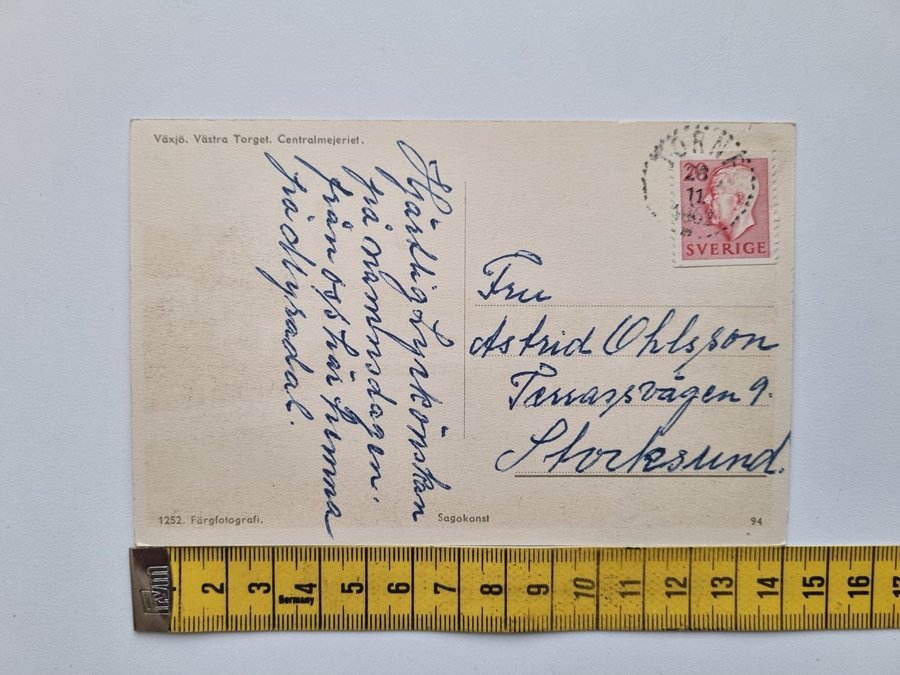 Växjö. Västra Torget. Centralmejeriet.
Hjärtlig Lyckönskan
på namnsdagen.
från oss här hemma
frid Myradal.
TORNE
26
11
SVERIGE
Fru
Astrid Ohlsson
Terrassvägen 9.
Stocksund.
1252. Färgfotografi.
Sagokonst
94
1 2 3 4 5 6 7 8 9 10 11 12 13 14 15 16 17
Germany